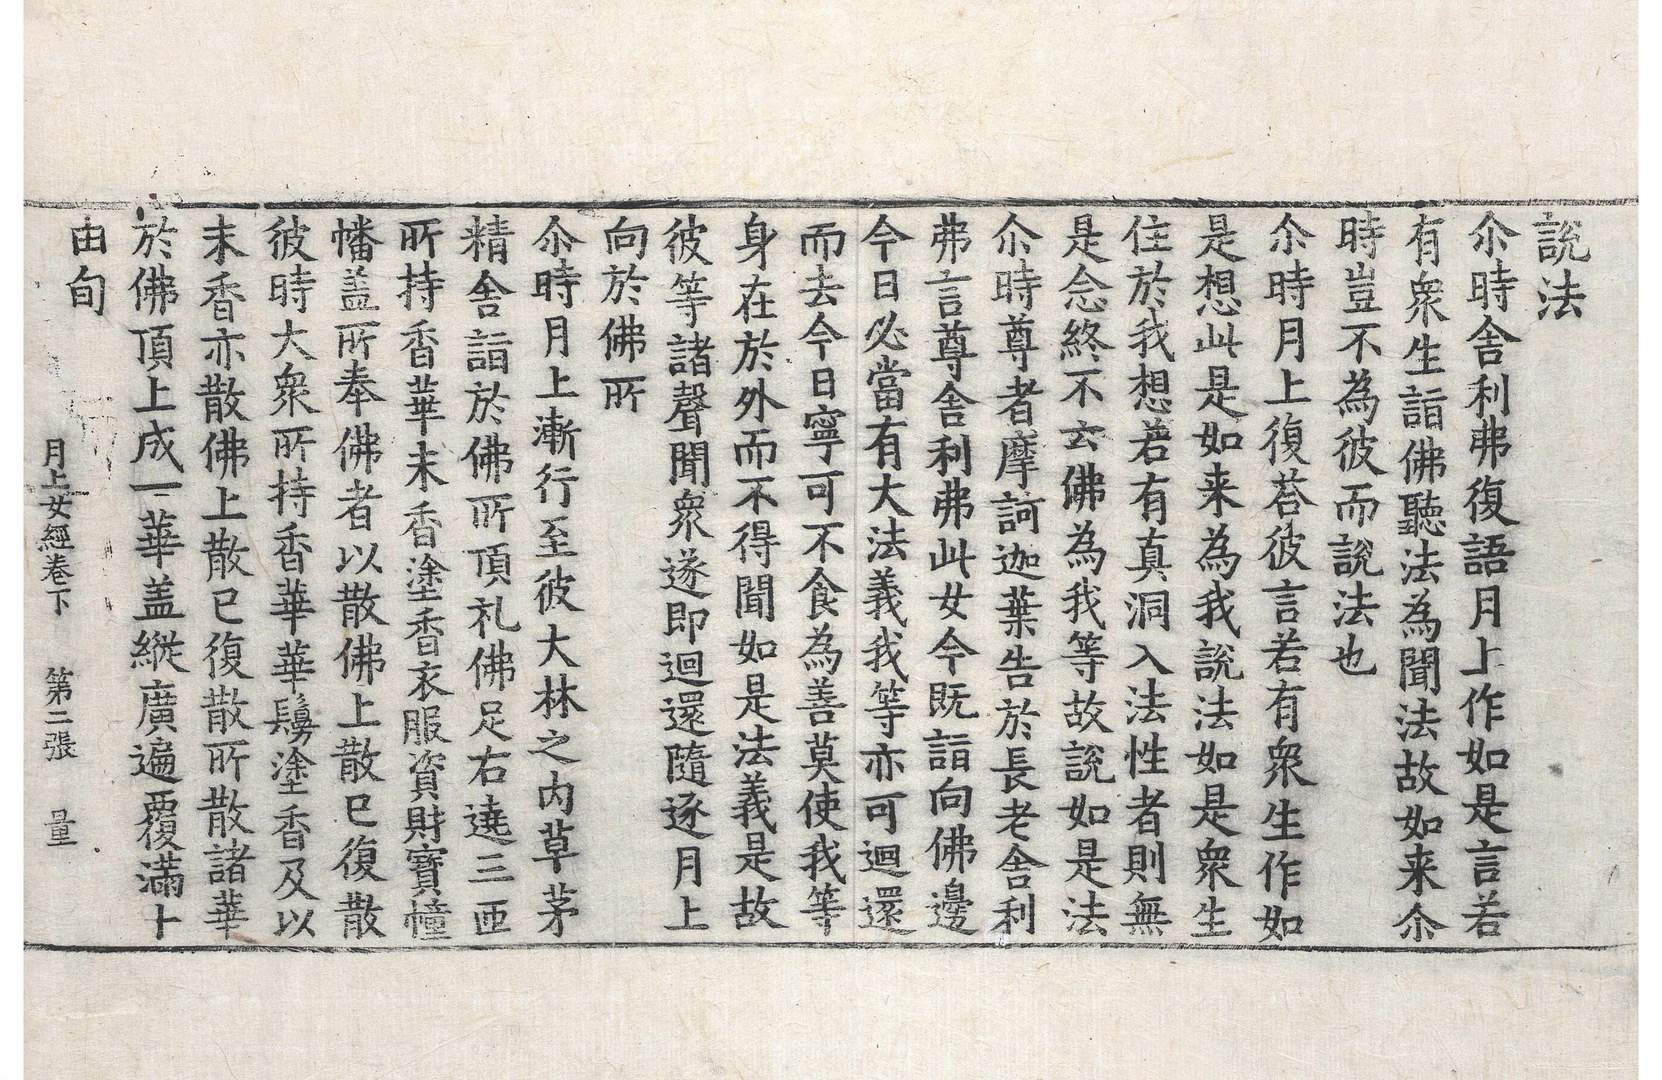 說法
尒時舎利弗復語月上作如是言若
有衆生詣佛聽法為聞法故如来尒
時豈不為彼而說法也
尒時月上復荅彼言若有衆生作如
是想此是如来為我說法如是衆生
住於我想若有真洞入法性者則無
是念終不云佛為我等故說如是法
尒時尊者摩訶迦葉告於長老舎利
弗言尊舎利弗此女今既詣向佛邊
今日必當有大法義我等亦可迴還
而去今日寧可不食為善莫使我等
身在於外而不得聞如是法義是故
彼等諸聲聞衆遂即迴還隨逐月上
向於佛所
尒時月上漸行至彼大林之内草茅
精舎詣於佛所頂礼佛足右遶三匝
所持香華末香塗香衣服資財寶幢
幡盖所奉佛者以散佛上散已復散
彼時大衆所持香華華鬘塗香及以
末香亦散佛上散已復散所散諸華
於佛頂上成一華盖縱廣遍覆滿卜
由旬
月上女經卷下　第二張　量